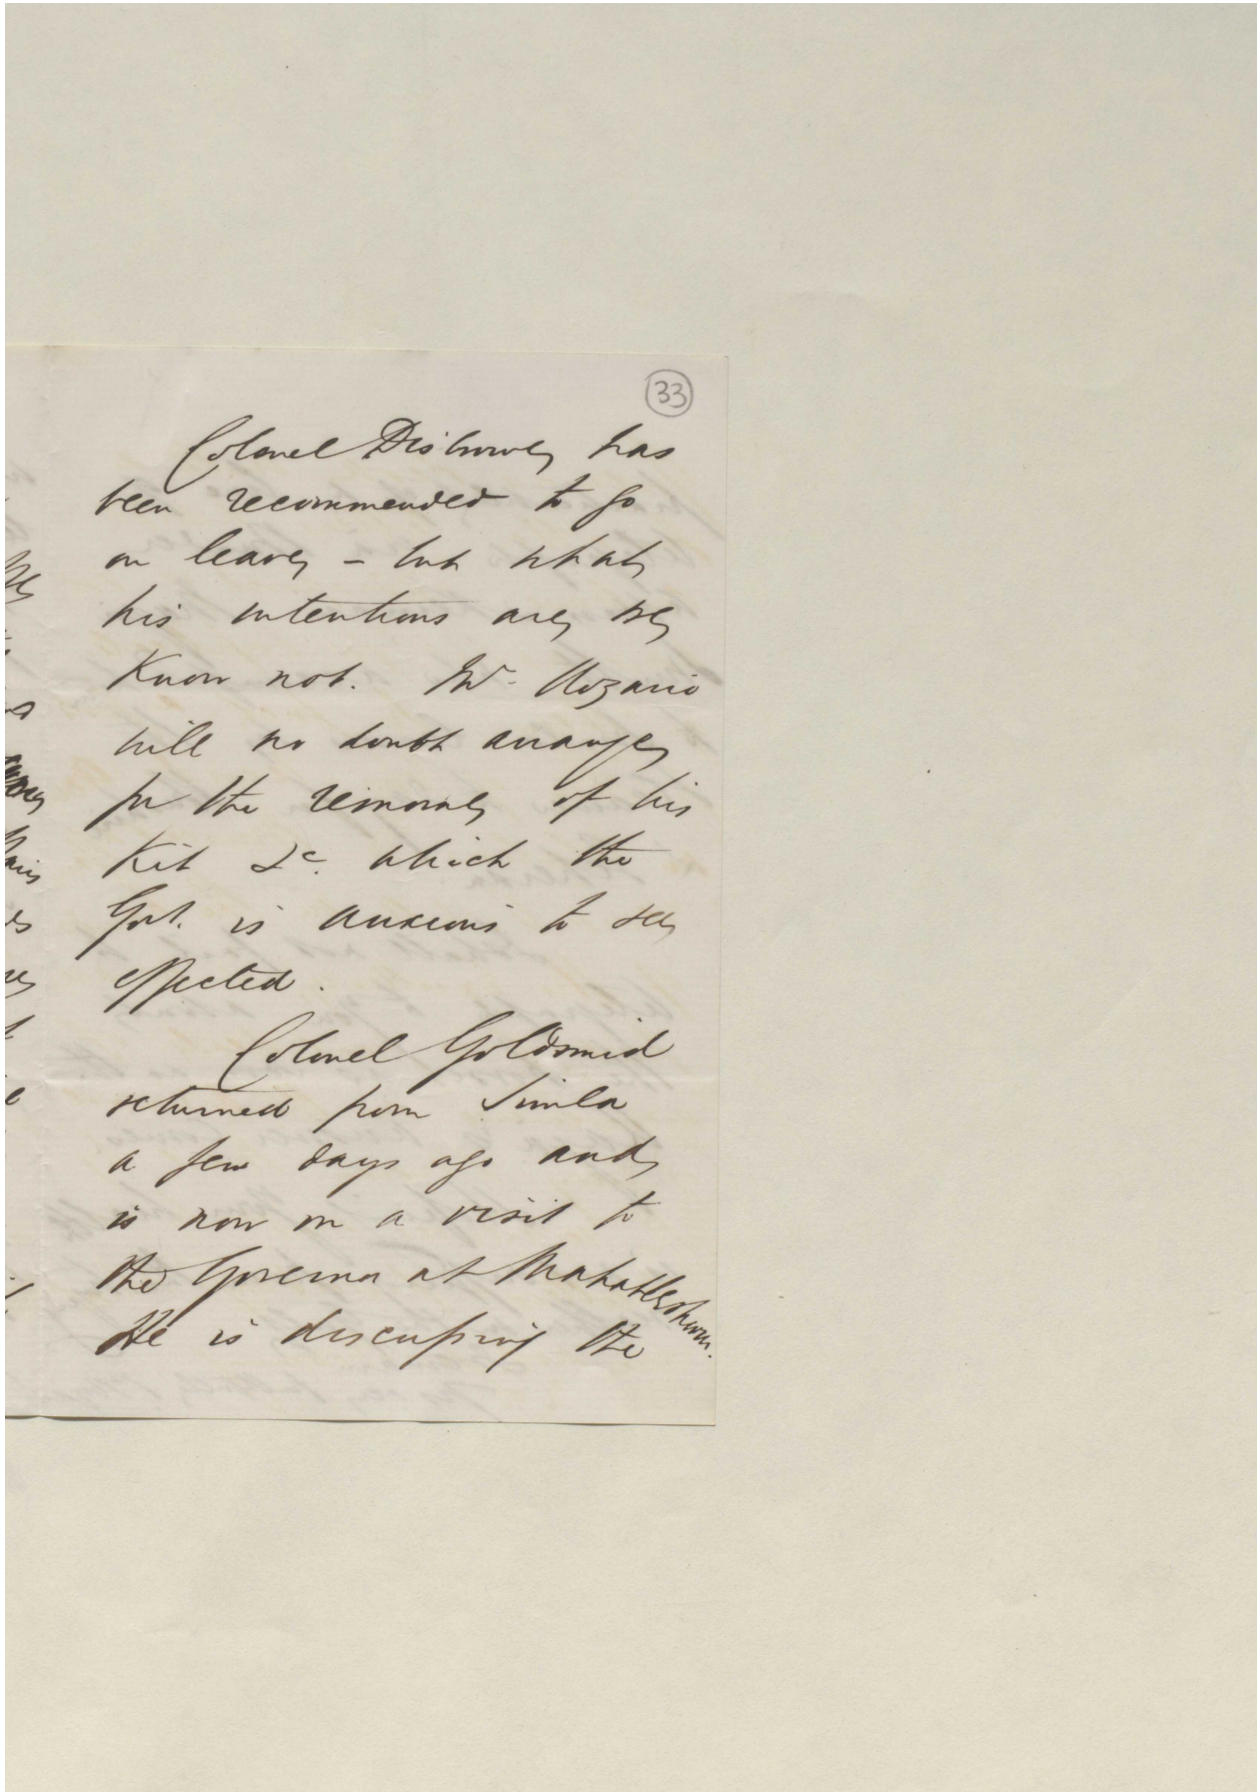 33
Colonel Disbrowe has
been recommended to go
on leave – but what
his intentions are, we
know not. Mr. Rozario
will no doubt arrange
for the removal of his
Kit &c. which the
Govt. is anxious to see
effected.
Colonel Goldsmid
returned from Simla
a few days ago and
is now on a visit to
the Governor at Mahableshwur.
He is discussing the